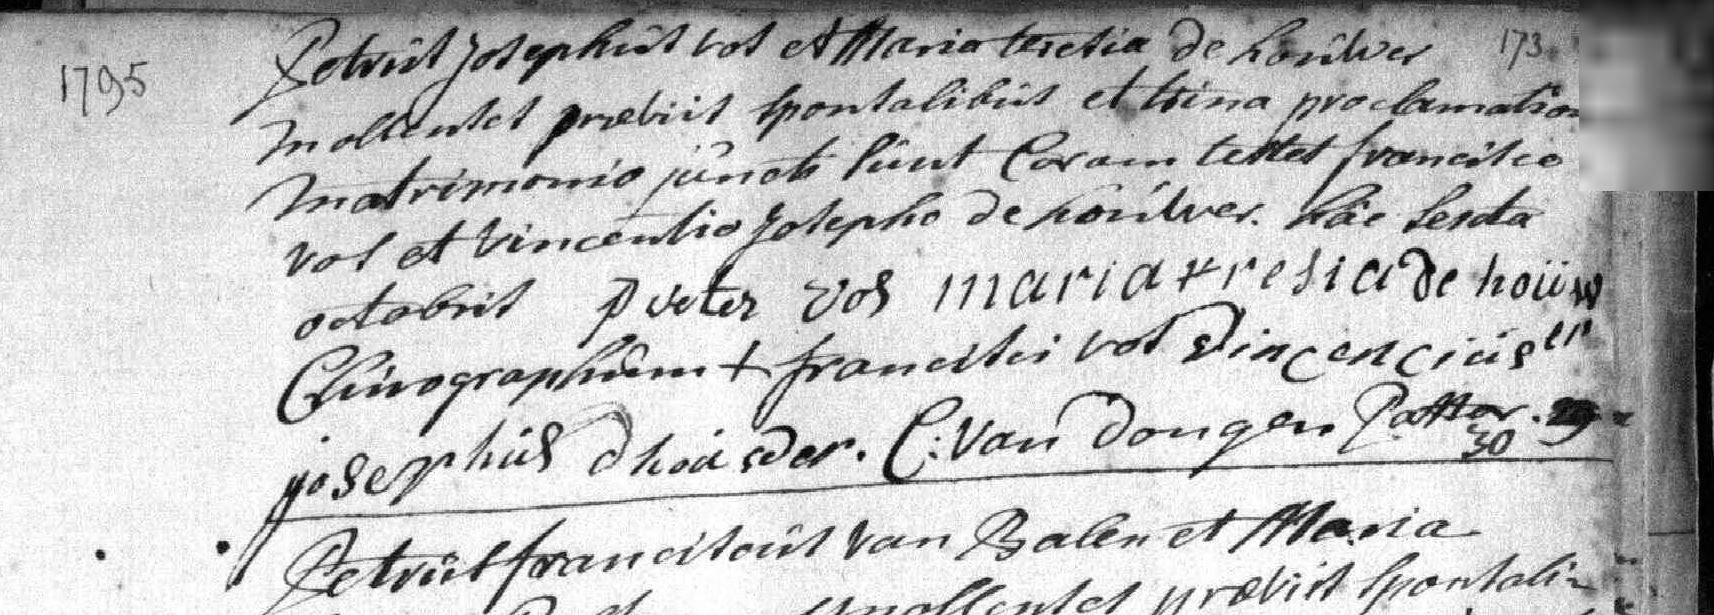 1795
Petrus Josephus vos et Maria teresia de houwer 173
mollenses præviis sponsalibus et trina proclamation
matrimonio juncti sunt Coram testes francisco
vos et vincentio Josepho de houwer. hac sexta
octobris peeter vos maria teresia de houw
Chirographum + francisci vos vincencius er
josephus dhouwer. C: Van Dongen Pastor. 29
30
Petrus franciscus Van Balen et Maria
mollenses præviis sponsali-